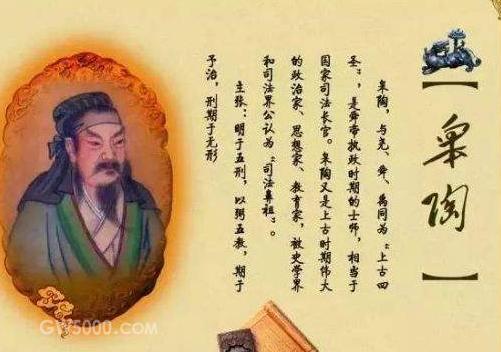 【皋陶】
皋陶，与尧、舜、禹同为“上古四
圣”，是舜帝执政时期的士师，相当于
国家司法长官。皋陶又是上古时期伟大
的政治家、思想家、教育家，被史学界
和司法界公认为“司法鼻祖”。
主张：明于五刑，以弼五教，期于
予治，刑期于无形
GW5000.COM